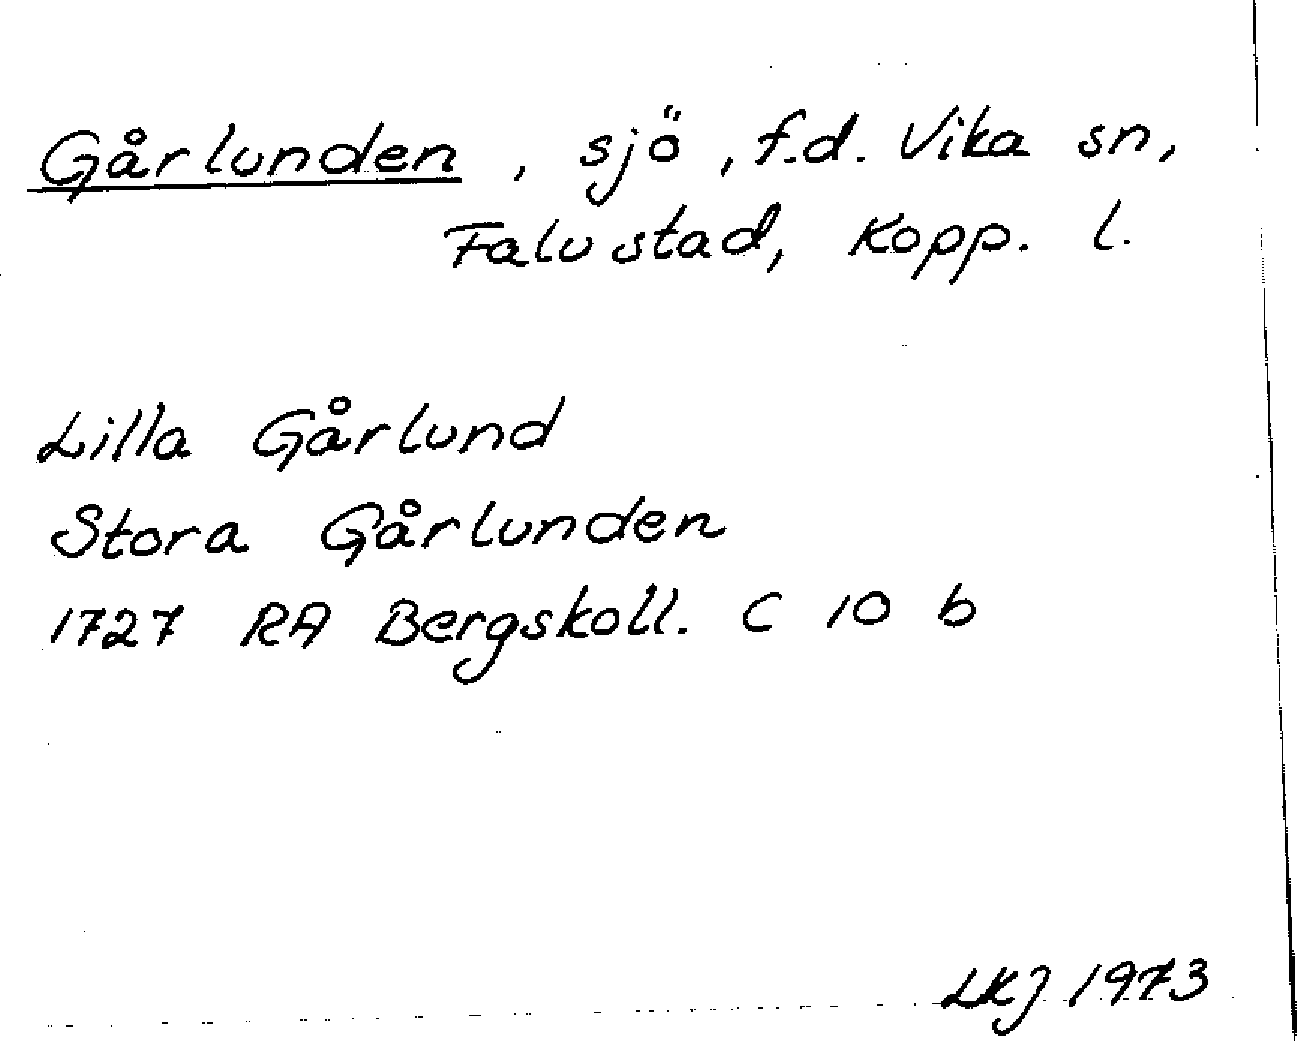 Gårlunden, sjö, f.d. Vika sn,
Falu stad, Kopp. l.
Lilla Gårlund
Stora Gårlunden
1727 RA Bergskoll. C 10 b
LKJ 1973